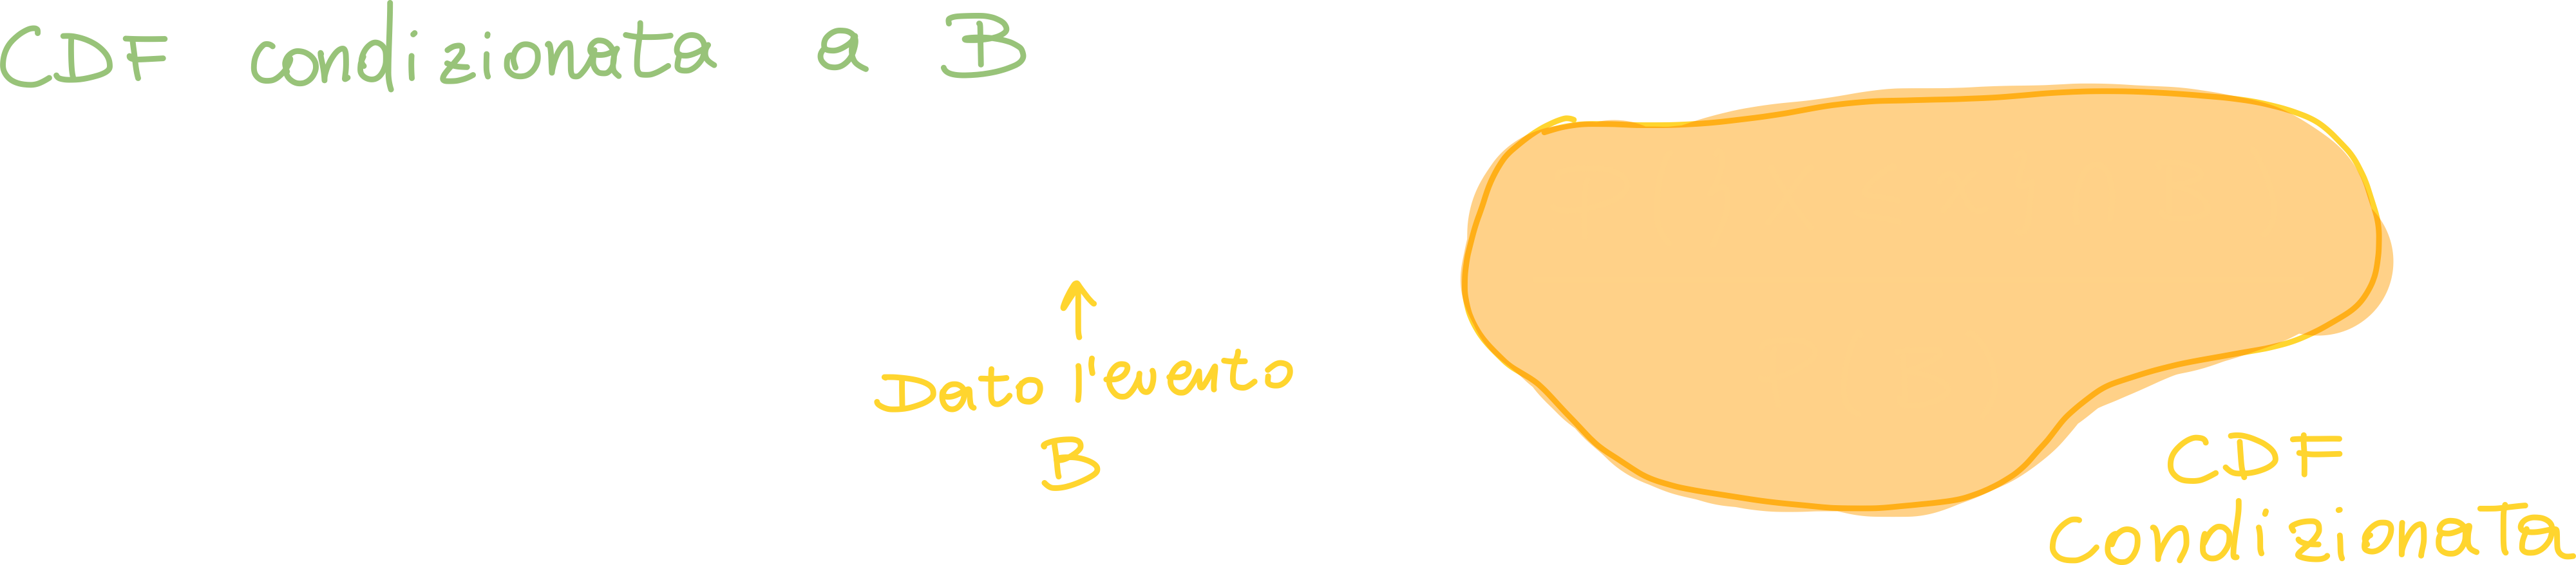 CDF condizionata a B
Dato l'evento
B
CDF
Condizionata